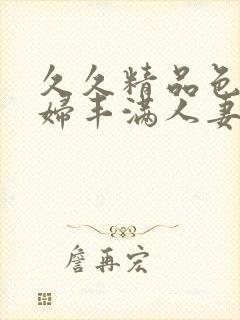 久久精品色
婦丰满人妻
詹再宏